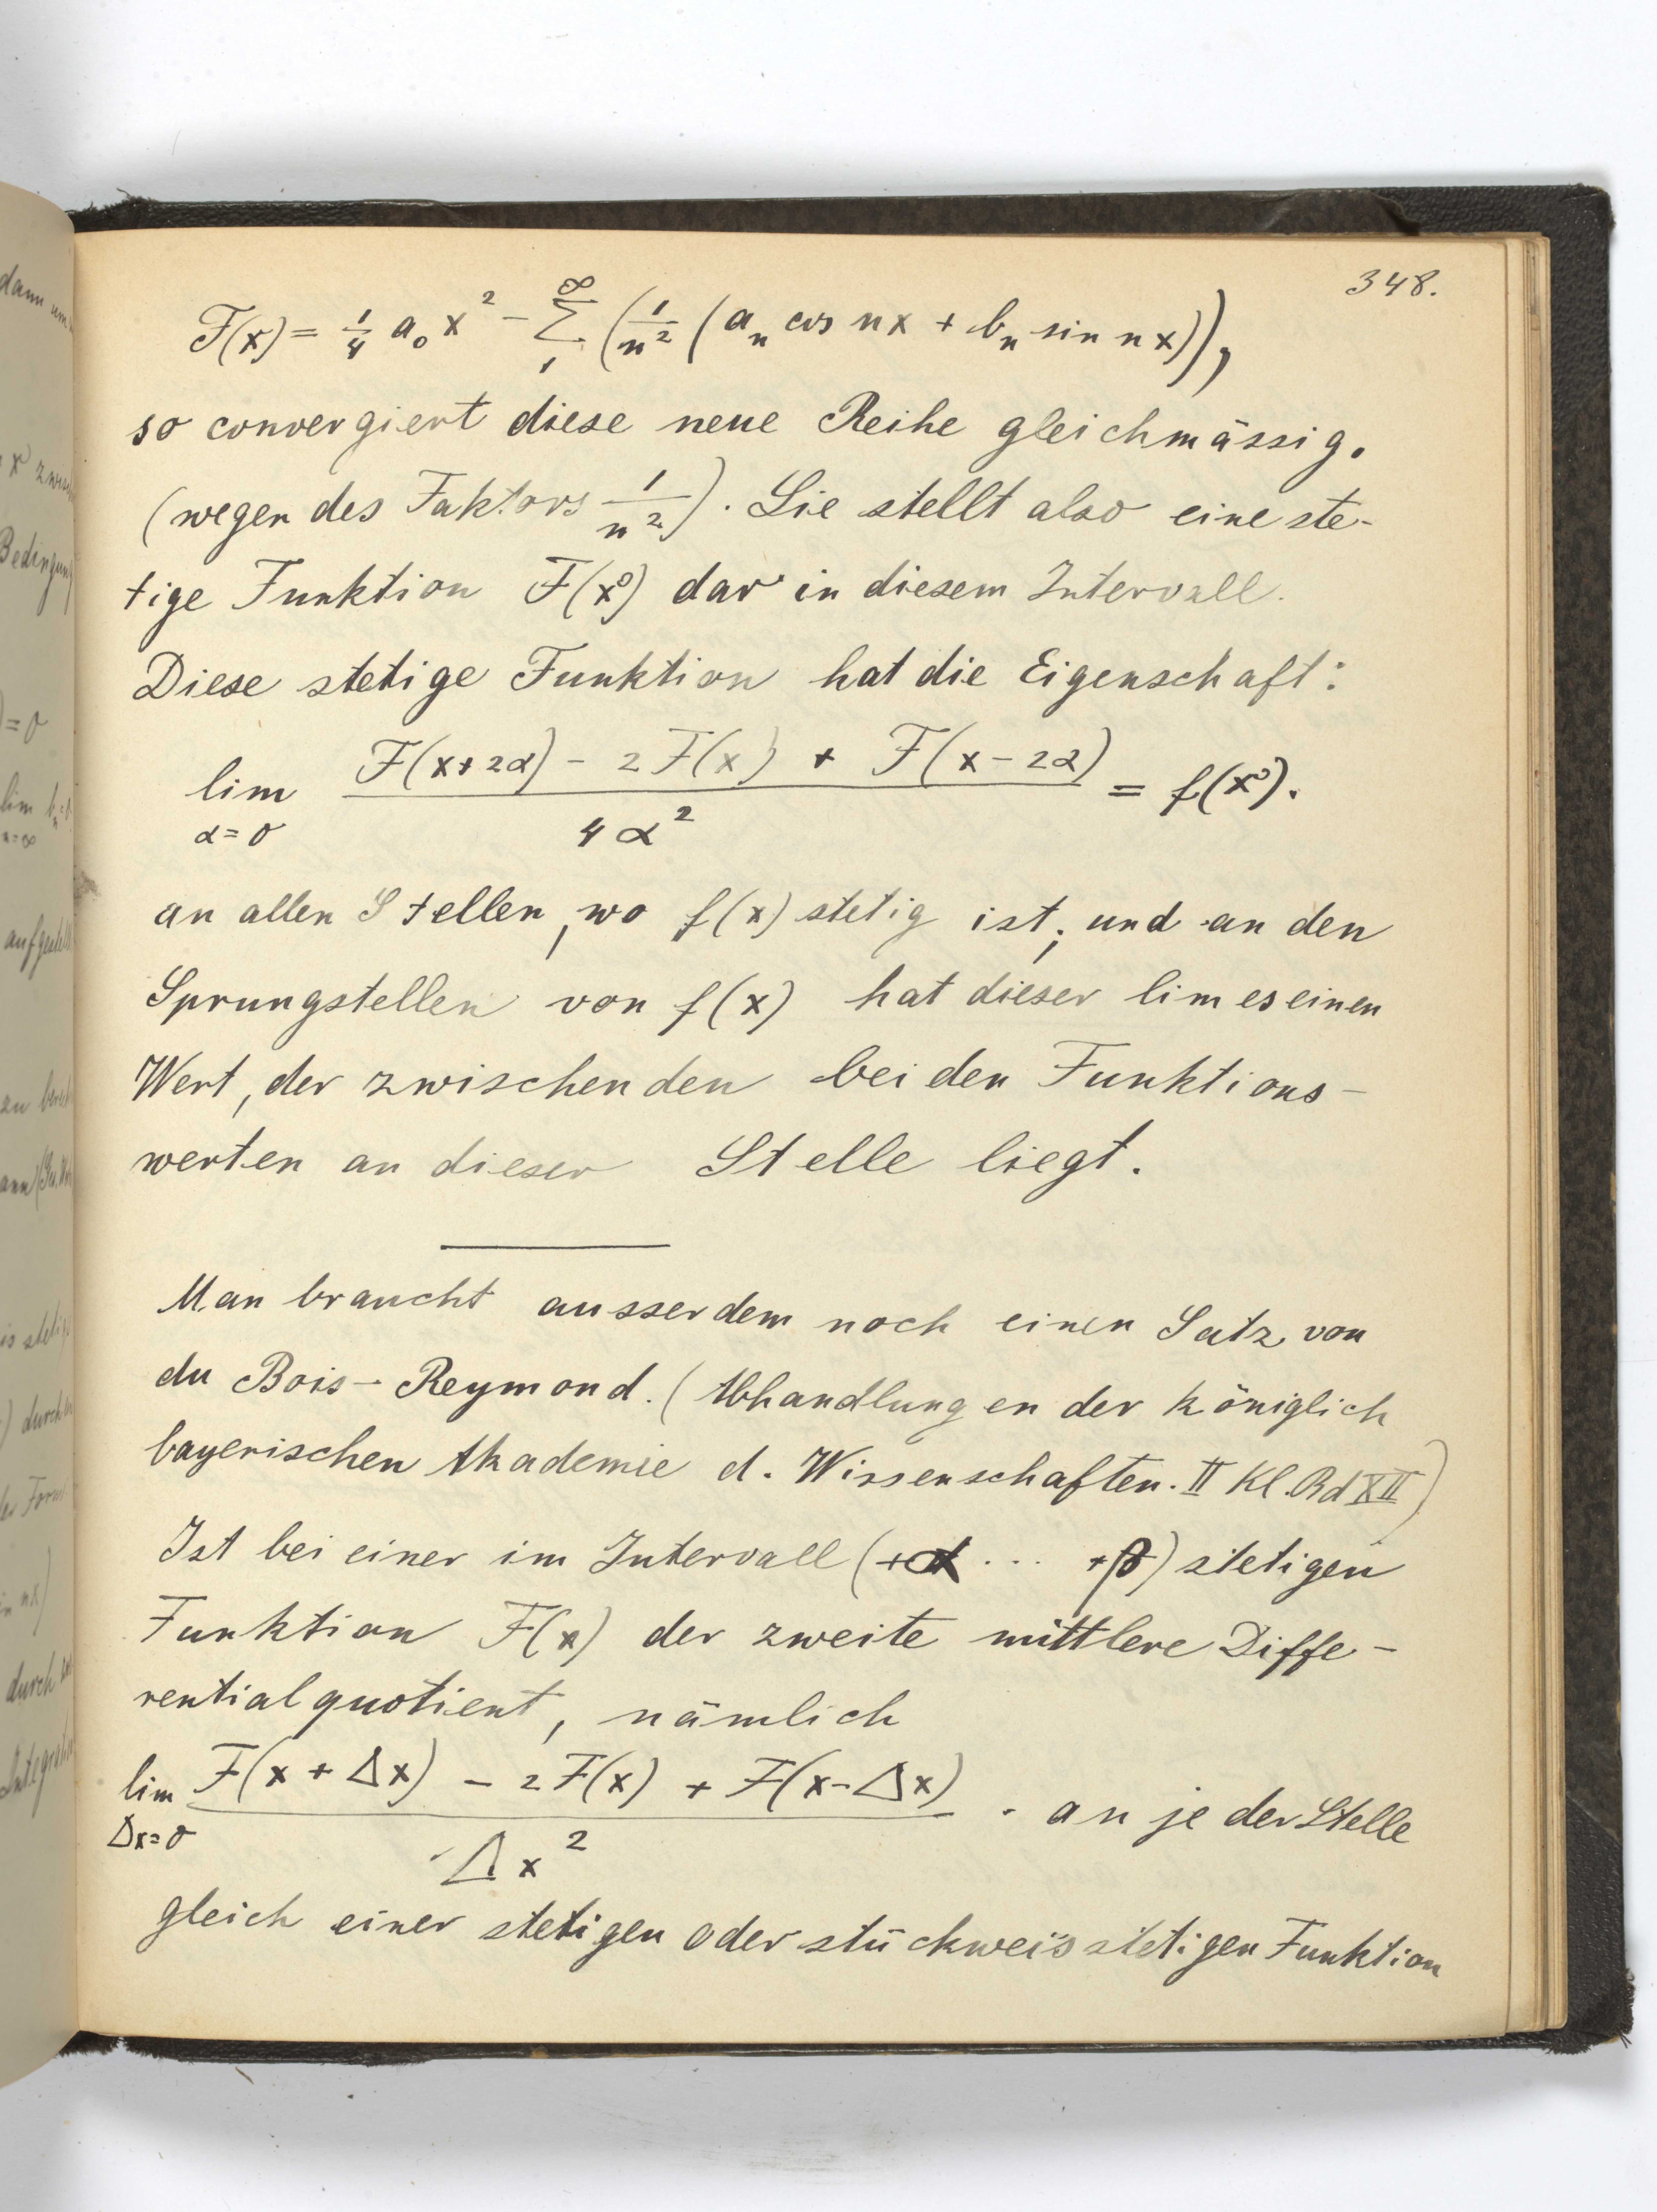 348.
F(x) = 1/4 a₀ x² − ∑₁^∞ (1/n² (aₙ cos nx + bₙ sin nx)),
so convergiert diese neue Reihe gleichmässig.
(wegen des Faktors 1/n²). Sie stellt also eine ste-
tige Funktion F(x) dar in diesem Intervall.
Diese stetige Funktion hat die Eigenschaft:
lim α=0 (F(x+2α) − 2F(x) + F(x−2α))/4α² = f(x).
an allen Stellen, wo f(x) stetig ist; und an den
Sprungstellen von f(x) hat dieser limes einen
Wert, der zwischen den beiden Funktions-
werten an dieser Stelle liegt.
Man braucht ausserdem noch einen Satz von
du Bois-Reymond. (Abhandlungen der königlich
bayerischen Akademie d. Wissenschaften. II Kl. Bd XII)
Ist bei einer im Intervall (+α ... +β) stetigen
Funktion F(x) der zweite mittlere Diffe-
rentialquotient, nämlich
lim Δx=0 (F(x+Δx) − 2F(x) + F(x−Δx))/Δx² . an jeder Stelle
gleich einer stetigen oder stückweis stetigen Funktion